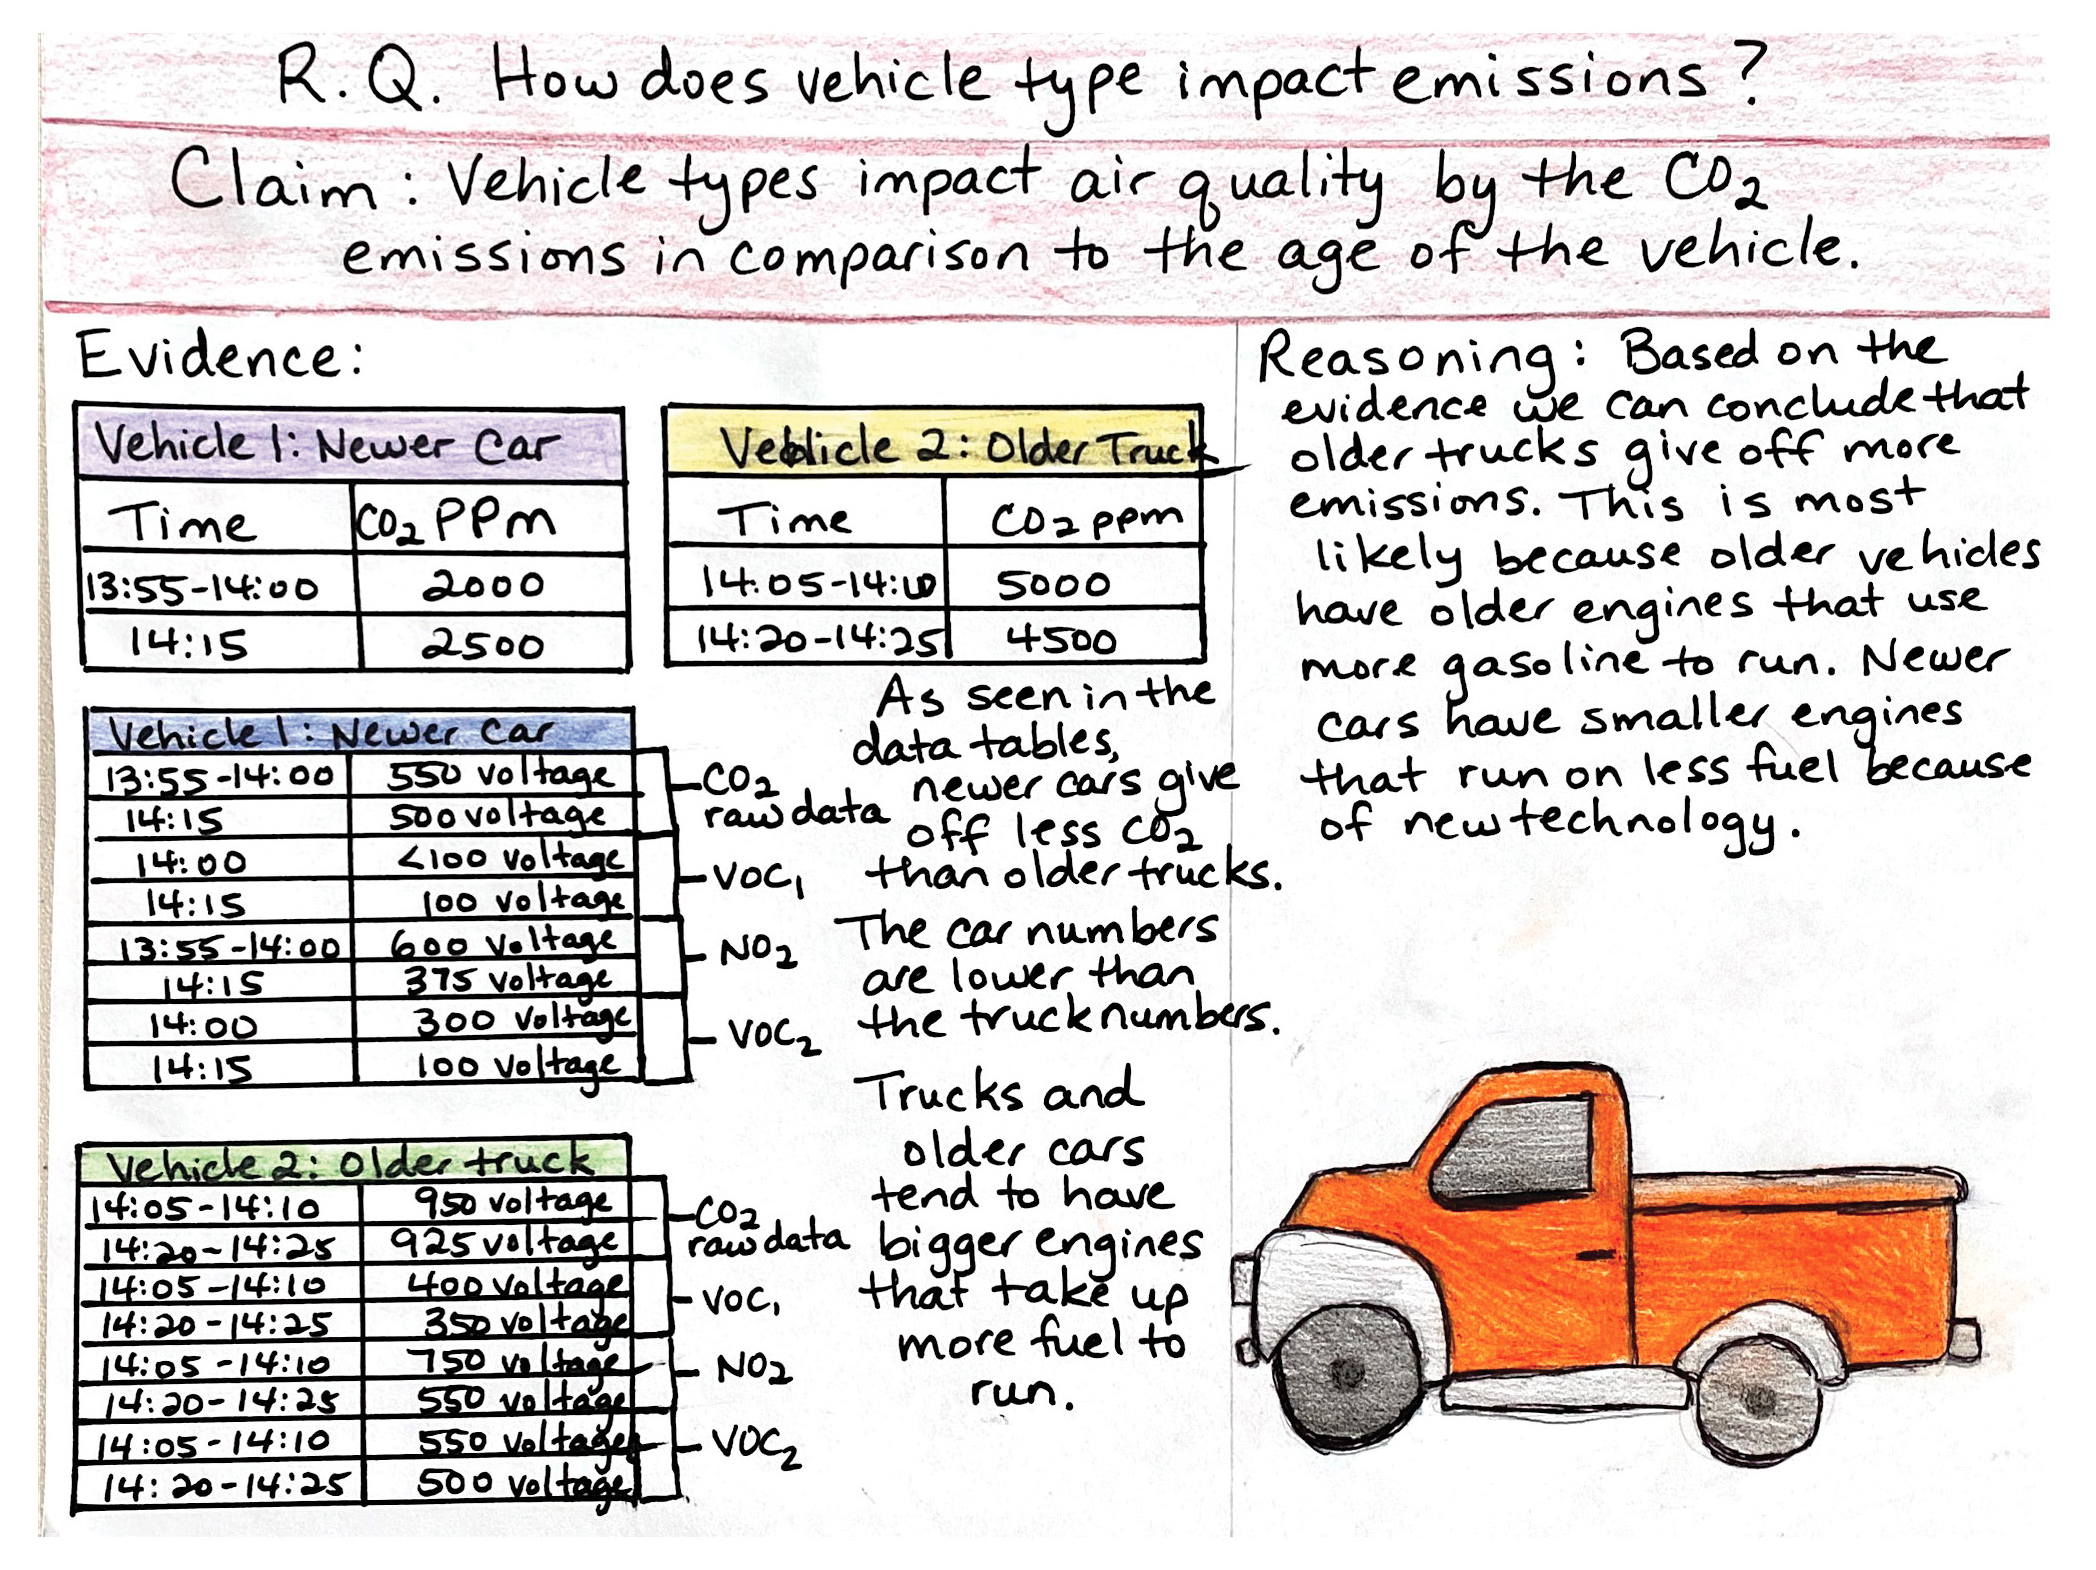 R.Q. How does vehicle type impact emissions?
Claim: Vehicle types impact air quality by the CO2
emissions in comparison to the age of the vehicle.
Evidence:
Vehicle 1: Newer Car
Time CO2 PPm
13:55-14:00 2000
14:15 2500
Vehicle 2: Older Truck
Time CO2 ppm
14:05-14:10 5000
14:20-14:25 4500
Vehicle 1: Newer Car
13:55-14:00 550 voltage
14:15 500 voltage
CO2
raw data
14:00 <100 voltage
14:15 100 voltage
VOC1
13:55-14:00 600 voltage
14:15 375 voltage
NO2
14:00 300 voltage
14:15 100 voltage
VOC2
Vehicle 2: Older truck
14:05-14:10 950 voltage
14:20-14:25 925 voltage
CO2
raw data
14:05-14:10 400 voltage
14:20-14:25 350 voltage
VOC1
14:05-14:10 750 voltage
14:20-14:25 550 voltage
NO2
14:05-14:10 550 voltage
14:20-14:25 500 voltage
VOC2
As seen in the
data tables,
newer cars give
off less CO2
than older trucks.
The car numbers
are lower than
the truck numbers.
Trucks and
older cars
tend to have
bigger engines
that take up
more fuel to
run.
Reasoning: Based on the
evidence we can conclude that
older trucks give off more
emissions. This is most
likely because older vehicles
have older engines that use
more gasoline to run. Newer
cars have smaller engines
that run on less fuel because
of new technology.